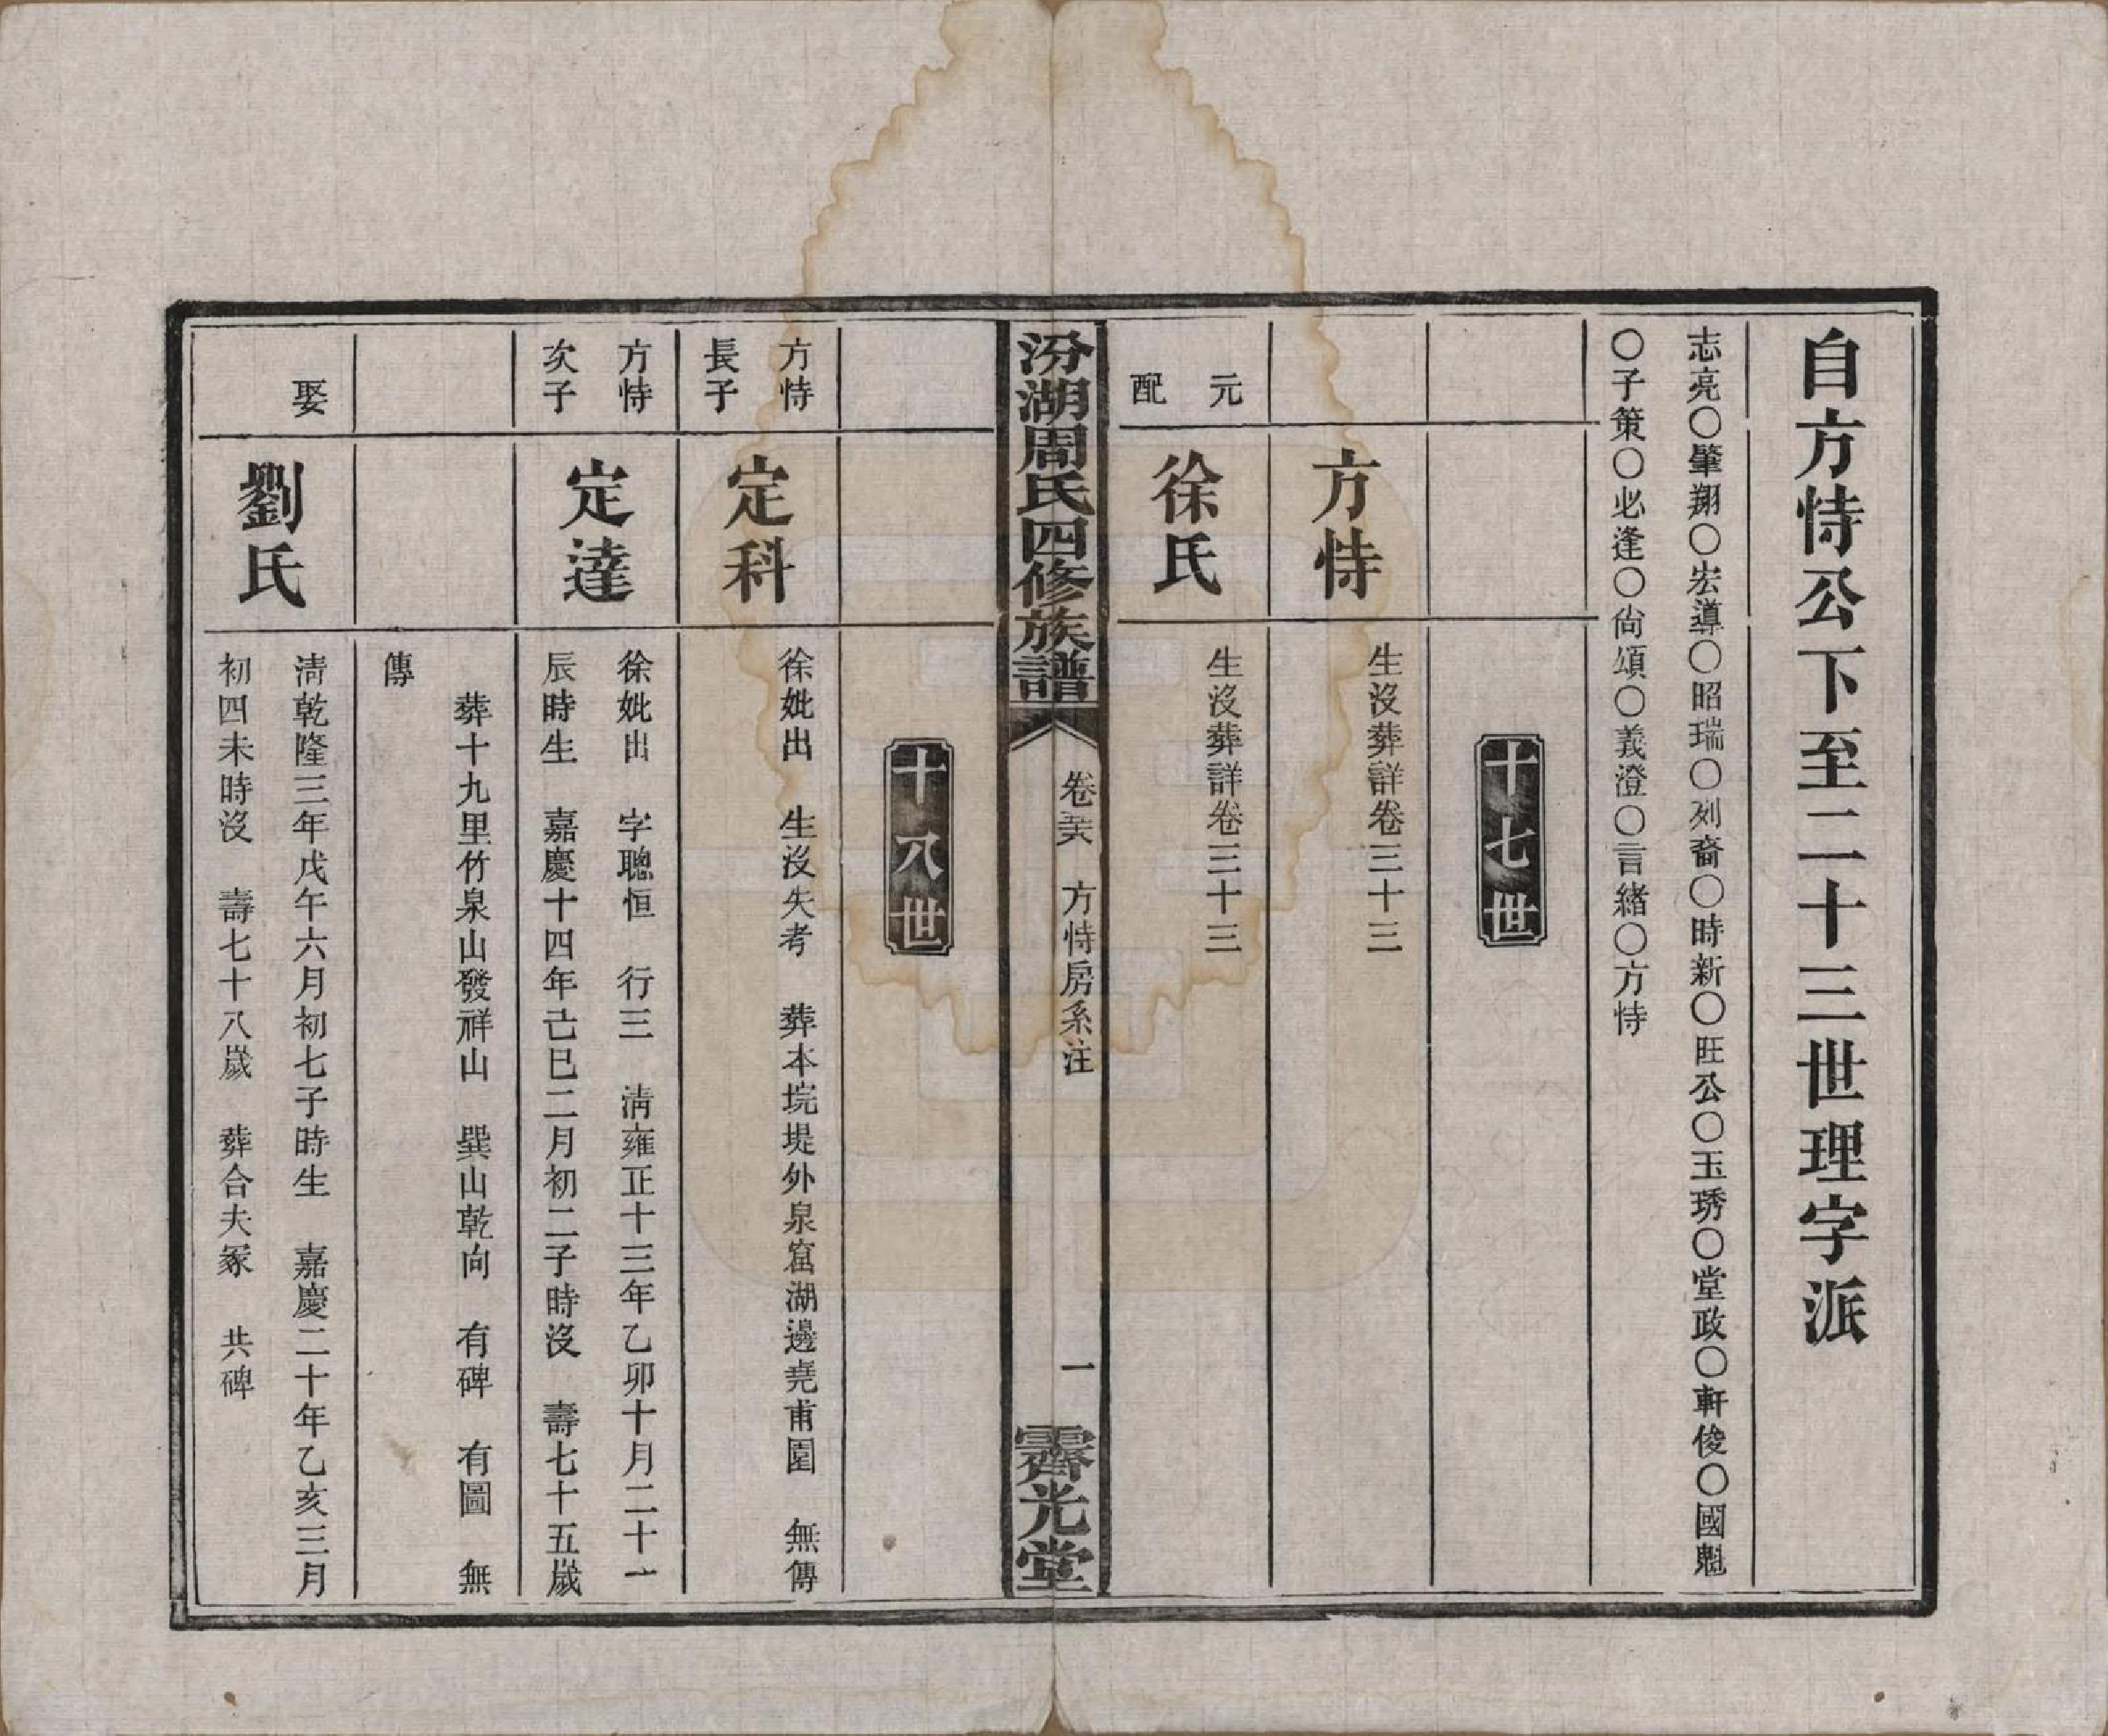 自方恃公下至二十三世理字派
志亮〇肇翔〇宏導〇昭瑞〇列裔〇時新〇旺公〇玉琇〇堂政〇軒俊〇國魁
〇子策〇必逢〇尙頌〇義澄〇言緒〇方恃
十七世
方恃
生沒葬詳卷三十三
元配
徐氏
生沒葬詳卷三十三
汾湖周氏四修族譜
卷
方恃房系注
一
霽光堂
十八世
方恃
長子
定科
徐妣出　生沒失考　葬本垸堤外泉窟湖邊堯甫園　無傳
方恃
次子
定達
徐妣出　字聰恒　行三　淸雍正十三年乙卯十月二十一
辰時生　嘉慶十四年己巳二月初二子時沒　壽七十五歲
葬十九里竹泉山發祥山　巽山乾向　有碑　有圖　無
傳
娶
劉氏
淸乾隆三年戊午六月初七子時生　嘉慶二十年乙亥三月
初四未時沒　壽七十八歲　葬合夫冢　共碑